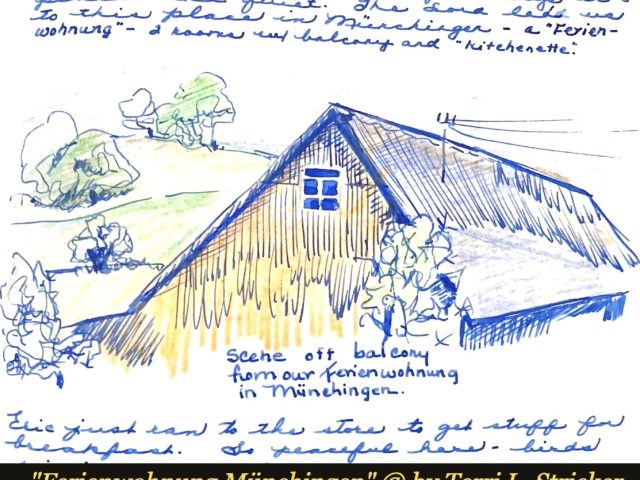 to this place in Münchinger - a "Ferien-
wohnung" - 2 rooms w/ balcony and "Kitchenette".
Scene off balcony
from our Ferienwohnung
in Münchingen.
Eric just ran to the store to get stuff for
breakfast. So peaceful here - birds
"Ferienwohnung Münchingen" © by Terri L. Stricker